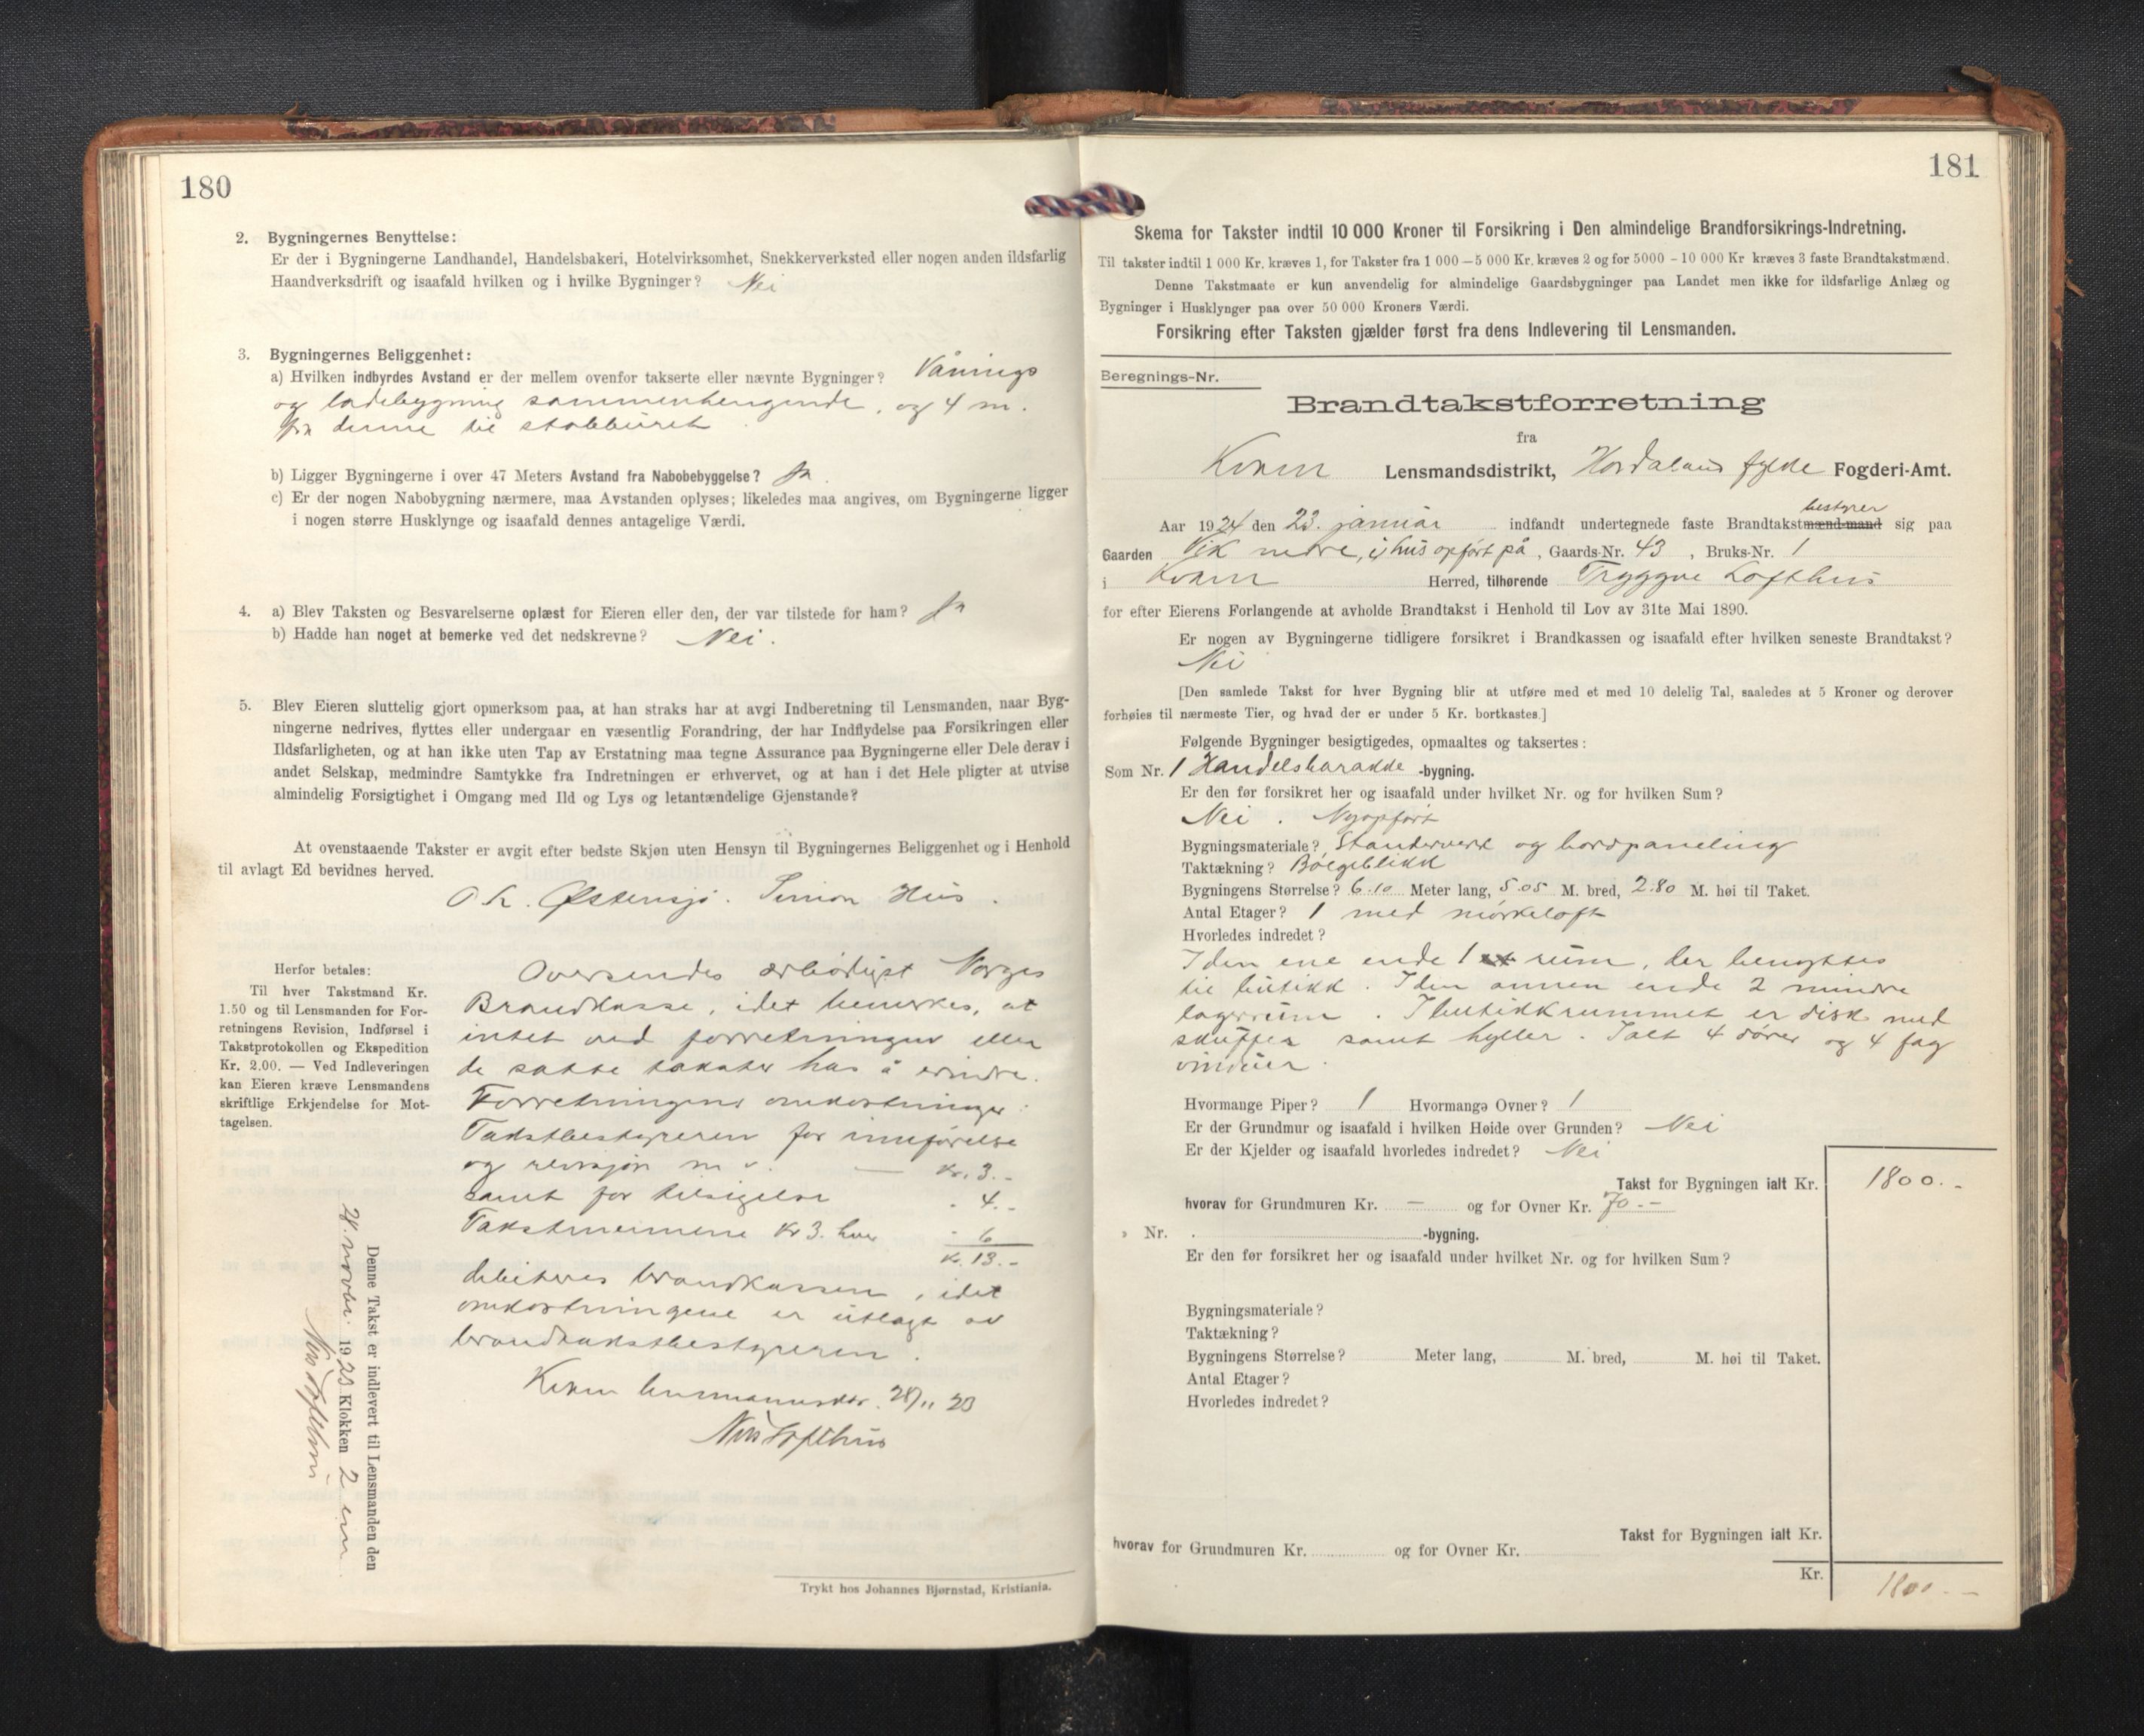 180
2. Bygningernes Benyttelse:
Er der i Bygningerne Landhandel, Handelsbakeri, Hotelvirksomhet, Snekkerverksted eller nogen anden ildsfarlig
Haandverksdrift og isaafald hvilken og i hvilke Bygninger? Nei
3. Bygningernes Beliggenhet:
a) Hvilken indbyrdes Avstand er der mellem ovenfor takserte eller nævnte Bygninger? Vånings
og ladebygning sammenhengende, og 4 m.
fra denne til stabburet
b) Ligger Bygningerne i over 47 Meters Avstand fra Nabobebyggelse? Ja.
c) Er der nogen Nabobygning nærmere, maa Avstanden oplyses; likeledes maa angives, om Bygningerne ligger
i nogen større Husklynge og isaafald dennes antagelige Værdi.
4. a) Blev Taksten og Besvarelserne oplæst for Eieren eller den, der var tilstede for ham? Ja
b) Hadde han noget at bemerke ved det nedskrevne? Nei.
5. Blev Eieren sluttelig gjort opmerksom paa, at han straks har at avgi Indberetning til Lensmanden, naar Byg-
ningerne nedrives, flyttes eller undergaar en væsentlig Forandring, der har Indflydelse paa Forsikringen eller
Ildsfarligheten, og at han ikke uten Tap av Erstatning maa tegne Assurance paa Bygningerne eller Dele derav i
andet Selskap, medmindre Samtykke fra Indretningen er erhvervet, og at han i det Hele pligter at utvise
almindelig Forsigtighet i Omgang med Ild og Lys og letantændelige Gjenstande?
At ovenstaaende Takster er avgit efter bedste Skjøn uten Hensyn til Bygningernes Beliggenhet og i Henhold
til avlagt Ed bevidnes herved.
O. K. Østensjø. Simon Hus.
Herfor betales:
Til hver Takstmand Kr.
1.50 og til Lensmanden for For-
retningens Revision, Indførsel i
Takstprotokollen og Ekspedition
Kr. 2.00. — Ved Indleveringen
kan Eieren kræve Lensmandens
skriftlige Erkjendelse for Mot-
tagelsen.
Oversendes ærbødigst Norges
Brandkasse, idet bemerkes, at
intet ved forretningen eller
de satte takster has å erindre.
Forretningens omkostninger:
Takstbestyreren for innførelse
og revisjon m v. — Kr. 3.-
samt for tilsigelse - 4.-
Takstmennene Kr 3. hver - 6
Kr. 13.-
debiteres brandkassen, idet
omkostningene er utlagt av
brandtakstbestyreren.
Kvam lensmannsktr. 28/11 23
Nils Lofthus
Denne Takst er indlevert til Lensmanden den
28. novbr. 1923 Klokken 2 em
Nils Lofthus
Trykt hos Johannes Bjørnstad, Kristiania.
181
Skema for Takster indtil 10 000 Kroner til Forsikring i Den almindelige Brandforsikrings-Indretning.
Til takster indtil 1 000 Kr. kræves 1, for Takster fra 1 000—5 000 Kr. kræves 2 og for 5000 - 10 000 Kr kræves 3 faste Brandtakstmænd.
Denne Takstmaate er kun anvendelig for almindelige Gaardsbygninger paa Landet men ikke for ildsfarlige Anlæg og
Bygninger i Husklynger paa over 50 000 Kroners Værdi.
Forsikring efter Taksten gjælder først fra dens Indlevering til Lensmanden.
Beregnings-Nr.
Brandtakstforretning
fra
Kvam Lensmandsdistrikt, Hordaland fylke Fogderi-Amt.
bestyrer
Aar 1924 den 23. januar indfandt undertegnede faste Brandtakstmænd-mand sig paa
Gaarden Vik nedre, i hus opført på, Gaards-Nr. 43, Bruks-Nr. 1
i Kvam Herred, tilhørende Tryggve Lofthus
for efter Eierens Forlangende at avholde Brandtakst i Henhold til Lov av 31te Mai 1890.
Er nogen av Bygningerne tidligere forsikret i Brandkassen og isaafald efter hvilken seneste Brandtakst?
Nei
[Den samlede Takst for hver Bygning blir at utføre med et med 10 delelig Tal, saaledes at 5 Kroner og derover
forhøies til nærmeste Tier, og hvad der er under 5 Kr. bortkastes.]
Følgende Bygninger besigtigedes, opmaaltes og taksertes:
Som Nr. 1 Handelsbarakke -bygning.
Er den før forsikret her og isaafald under hvilket Nr. og for hvilken Sum?
Nei. Nyopført
Bygningsmateriale? Standerverk og bordpaneling
Taktækning? Bølgeblikk
Bygningens Størrelse? 6.10 Meter lang, 5.05 M. bred, 2.80 M. høi til Taket.
Antal Etager? 1 med mørkeloft
Hvorledes indredet?
I den ene ende 1 rum, der benyttes
til butikk. I den annen ende 2 mindre
lagerrum. I butikkrummet er disk med
skuffer samt hyller. Ialt 4 dører og 4 fag
vinduer.
Hvormange Piper? 1 Hvormange Ovner? 1
Er der Grundmur og isaafald i hvilken Høide over Grunden? Nei
Er der Kjelder og isaafald hvorledes indredet? Nei
Takst for Bygningen ialt Kr. 1800.-
hvorav for Grundmuren Kr. — og for Ovner Kr. 70.-
» Nr. -bygning.
Er den før forsikret her og isaafald under hvilket Nr. og for hvilken Sum?
Bygningsmateriale?
Taktækning?
Bygningens Størrelse? Meter lang, M. bred, M. høi til Taket.
Antal Etager?
Hvorledes indredet?
Takst for Bygningen ialt Kr.
hvorav for Grundmuren Kr. og for Ovner Kr.
Kr. 1800.-